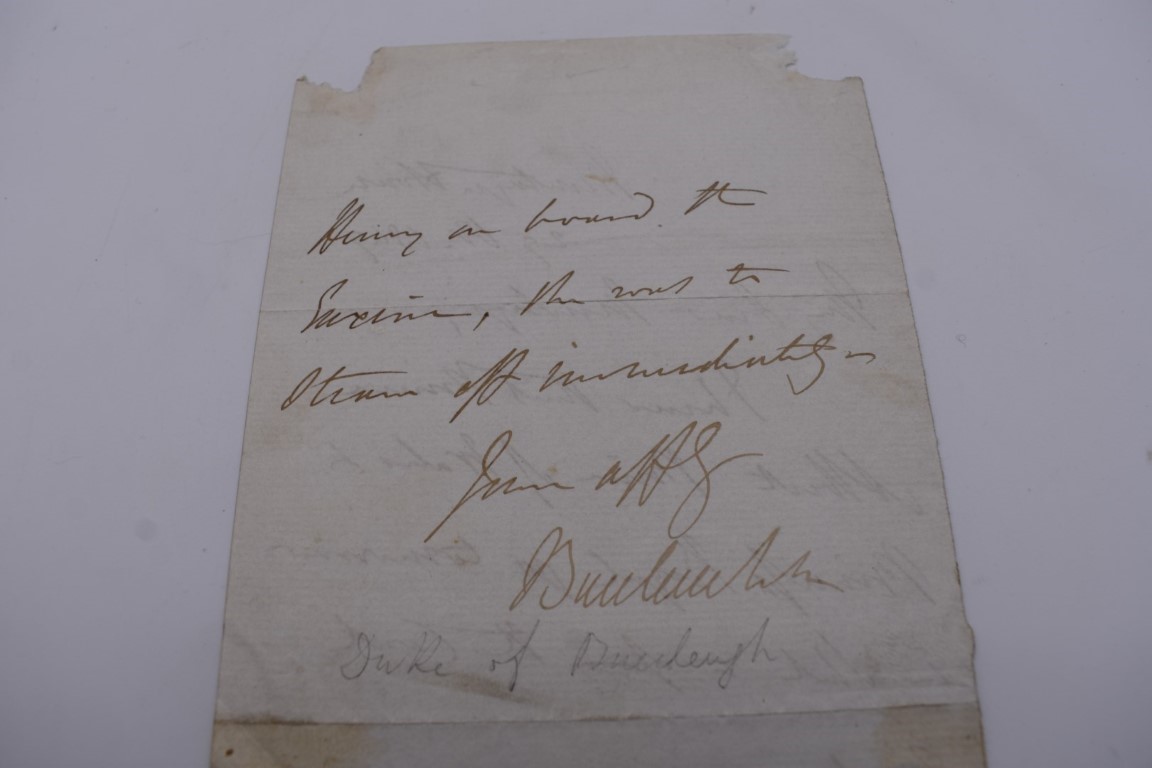 Henry on board the
Euxine, she was to
steam off immediately –
Yours affly
Buccleuch
Duke of Buccleugh